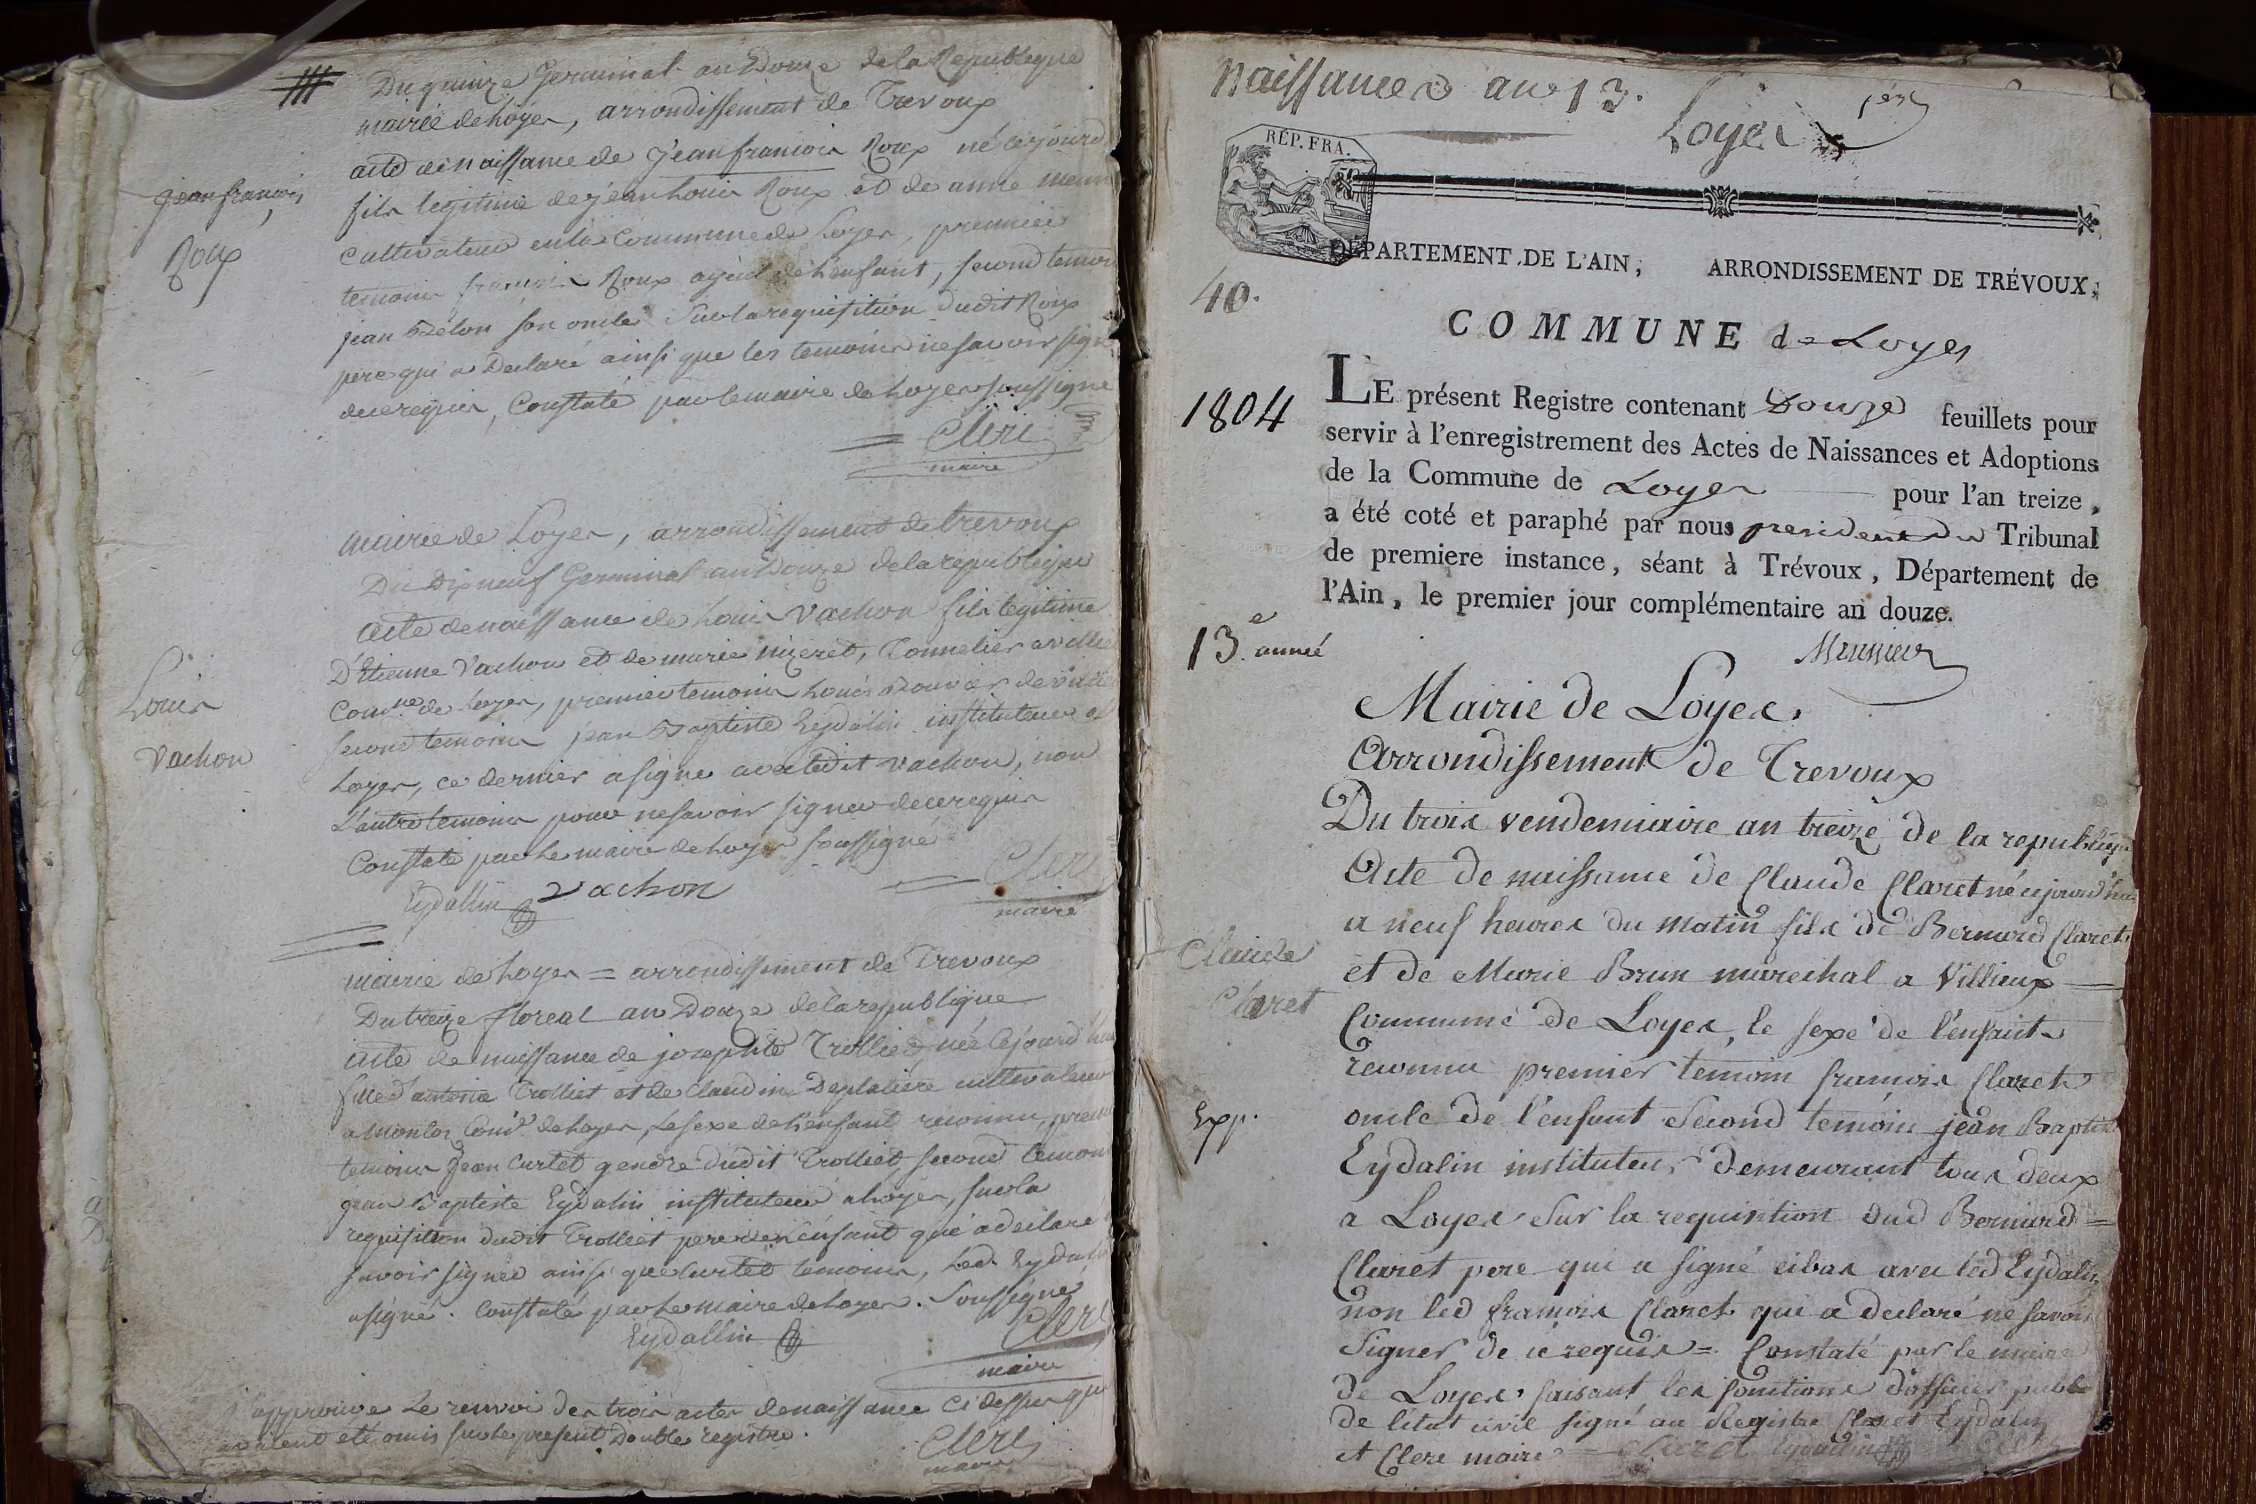 Du quinze Germinal an Douze de la Republique
mairie de Loyes, arrondissement de Trevoux
acte de naissance de jean francois Roux né cejourd
fils legitime de jean Louis Roux et de anne
jean francois
Roux
cultivateur en la Commune de Loyes, premier
temoin francois Roux ayeul de l'enfant, second temoin
jean son oncle Sur la requisition dudit Roux
pere qui a declaré ainsi que les temoins ne savoir signer
de ce requis, Constaté par le maire de Loyes soussigné
Clerc
maire
mairie de Loyes, arrondissement de trevoux
Du Dixneuf Germinal an Douze de la republique
acte de naissance de Louis Vachon fils legitime
D'Etienne Vachon et de marie mizeret, Tonnelier a
Louis
Vachon
Comne de Loyes, premier temoin Louis de
second temoin jean Baptiste Eydalin instituteur a
Loyes, ce dernier a signé avec ledit Vachon, non
L'autre temoin pour ne savoir signer de ce requis
Constaté par le maire de Loyes soussigné
Eydallin Vachon
Clerc
maire
mairie de Loyes = arrondissement de Trevoux
Du treize floreal an Douze de la republique
acte de naissance de josephte Trolliet, née cejourd'hui
fille d'antoine Trolliet et de Claudine Deplatiere cultivateur
a Comne de Loyes, le sexe de l'enfant reconnu, premier
temoin jean Curtet gendre dudit Trolliet, second temoin
jean Baptiste Eydalin instituteur a Loyes, sur la
requisition dudit Trolliet pere de l'enfant qui a declaré
savoir signer ainsi que Curtet temoin, led. Eydalin
a signé. Constaté par le maire de Loyes. Soussigné
Eydallin
Clerc
maire
approuvé le renvoi des trois actes de naissance ci dessus qui
avaient été omis sur le present Double registre.
Clerc
maire
Naissances an 13.
Loyes
RÉP. FRA.
DÉPARTEMENT DE L'AIN, ARRONDISSEMENT DE TRÉVOUX,
40.
COMMUNE de Loyes
1804
LE présent Registre contenant Douze feuillets pour
servir à l'enregistrement des Actes de Naissances et Adoptions
de la Commune de Loyes pour l'an treize,
a été coté et paraphé par nous president du Tribunal
de premiere instance, séant à Trévoux, Département de
l'Ain, le premier jour complémentaire an douze.
13e année
Mairie de Loyes.
Arrondissement de Trevoux
Du trois vendemiaire an treize de la republique
Acte de naissance de Claude Claret né cejourd'hui
a neuf heures du matin fils de Bernard Claret
Claude
Claret
et de Marie Brun marechal a Villieux
Commune de Loyes, le sexe de l'enfant
reconnu premier temoin francois Claret
Exp.
oncle de l'enfant Second temoin jean Baptiste
Eydalin instituteur demeurant tous deux
a Loyes Sur la requisition dud Bernard =
Claret pere qui a signé cibas avec led Eydalin
non led francois Claret qui a declaré ne savoir
Signer de ce requis = Constaté par le maire
de Loyes faisant les fonctions d'officier public
de l'etat civil signé au Registre Claret Eydalin
et Clerc maire = Claret Eydallin